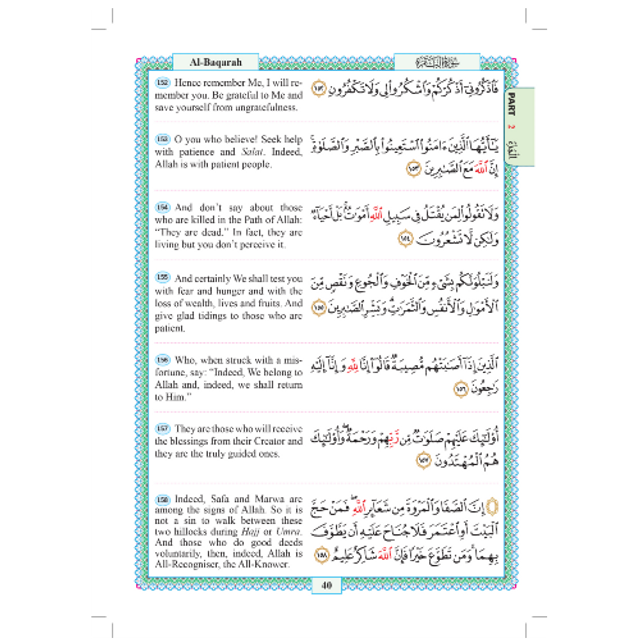 Al-Baqarah
سُورَةُ البَقَرَة
PART 2
152 Hence remember Me, I will re-
member you. Be grateful to Me and
save yourself from ungratefulness.
فَٱذْكُرُونِىٓ أَذْكُرْكُمْ وَٱشْكُرُوا۟ لِى وَلَا تَكْفُرُونِ ١٥٢
153 O you who believe! Seek help
with patience and Salat. Indeed,
Allah is with patient people.
يَـٰٓأَيُّهَا ٱلَّذِينَ ءَامَنُوا۟ ٱسْتَعِينُوا۟ بِٱلصَّبْرِ وَٱلصَّلَوٰةِ ۚ
إِنَّ ٱللَّهَ مَعَ ٱلصَّـٰبِرِينَ ١٥٣
154 And don’t say about those
who are killed in the Path of Allah:
“They are dead.” In fact, they are
living but you don’t perceive it.
وَلَا تَقُولُوا۟ لِمَن يُقْتَلُ فِى سَبِيلِ ٱللَّهِ أَمْوَٰتٌۢ ۚ بَلْ أَحْيَآءٌ
وَلَـٰكِن لَّا تَشْعُرُونَ ١٥٤
155 And certainly We shall test you
with fear and hunger and with the
loss of wealth, lives and fruits. And
give glad tidings to those who are
patient.
وَلَنَبْلُوَنَّكُم بِشَىْءٍ مِّنَ ٱلْخَوْفِ وَٱلْجُوعِ وَنَقْصٍ مِّنَ
ٱلْأَمْوَٰلِ وَٱلْأَنفُسِ وَٱلثَّمَرَٰتِ ۗ وَبَشِّرِ ٱلصَّـٰبِرِينَ ١٥٥
156 Who, when struck with a mis-
fortune, say: “Indeed, We belong to
Allah and, indeed, we shall return
to Him.”
ٱلَّذِينَ إِذَآ أَصَـٰبَتْهُم مُّصِيبَةٌ قَالُوٓا۟ إِنَّا لِلَّهِ وَإِنَّآ إِلَيْهِ
رَٰجِعُونَ ١٥٦
157 They are those who will receive
the blessings from their Creator and
they are the truly guided ones.
أُو۟لَـٰٓئِكَ عَلَيْهِمْ صَلَوَٰتٌ مِّن رَّبِّهِمْ وَرَحْمَةٌ ۖ وَأُو۟لَـٰٓئِكَ
هُمُ ٱلْمُهْتَدُونَ ١٥٧
158 Indeed, Safa and Marwa are
among the signs of Allah. So it is
not a sin to walk between these
two hillocks during Hajj or Umra.
And those who do good deeds
voluntarily, then, indeed, Allah is
All-Recogniser, the All-Knower.
۞ إِنَّ ٱلصَّفَا وَٱلْمَرْوَةَ مِن شَعَآئِرِ ٱللَّهِ ۖ فَمَنْ حَجَّ
ٱلْبَيْتَ أَوِ ٱعْتَمَرَ فَلَا جُنَاحَ عَلَيْهِ أَن يَطَّوَّفَ
بِهِمَا ۚ وَمَن تَطَوَّعَ خَيْرًا فَإِنَّ ٱللَّهَ شَاكِرٌ عَلِيمٌ ١٥٨
40